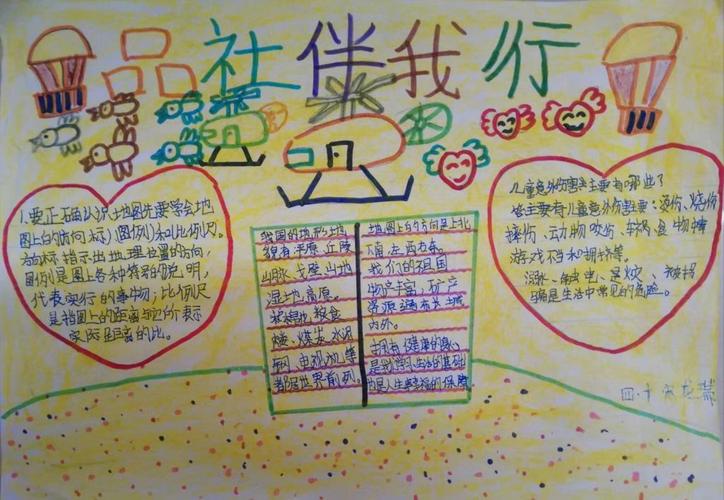 品社伴我行
1.要正确认识土地图先要学会地
图上的方向(标)、(图例)和比例尺。
方向标指示出地理位置的方向,
图例是图上各种符号的说明,
代表实行的事物;比例尺
是指图上的距离与
实际距离的比。
我国的地形地
貌有平原丘陵
山脉戈壁山地
湿地高原。
粮食
煤炭水泥
钢、电视机等
都居世界前列。
地图上的方向是上北
下南左西右东。
我们的祖国
物产丰富,矿产
资源遍布关土域
内外。
拥有健康的身心
是学习生活的基础
也是人生幸福的保障
儿童意外伤害主要有哪些?
答主要有儿童意外伤害主要:烫伤、烧伤
摔伤、动物咬伤、车祸、
游戏不当和拥挤等。
溺水、触电、
是生活中常见的危险。
四·十